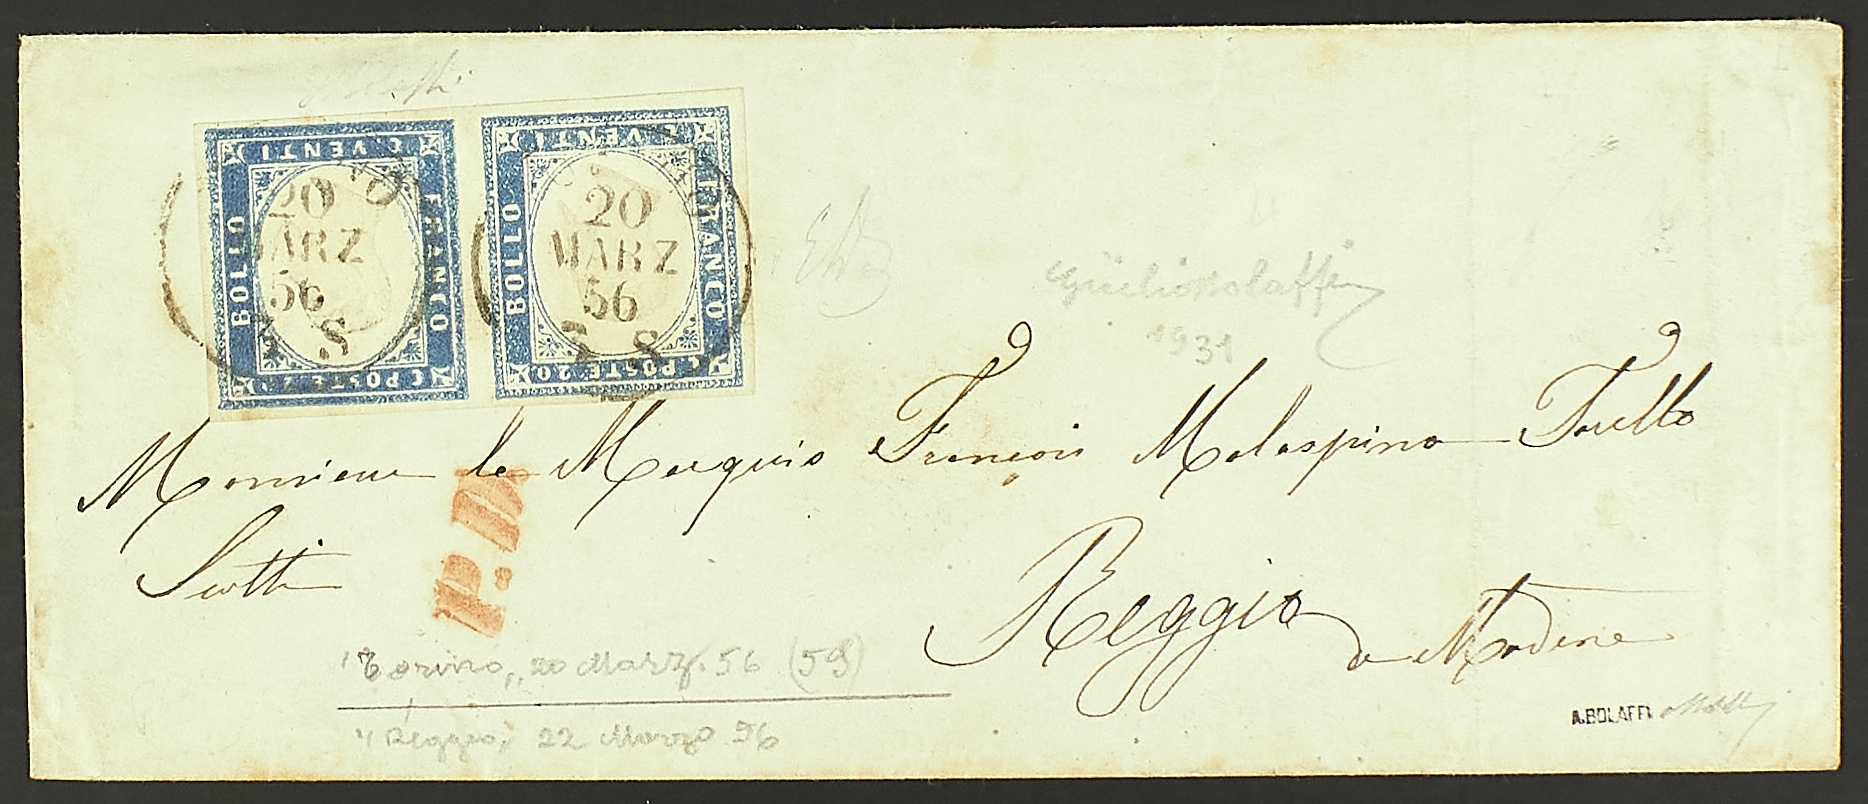 C. VENTI
BOLLO
FRANCO
C. POSTE 20
20
MARZ
56
5 S
C. VENTI
BOLLO
FRANCO
C. POSTE 20
20
MARZ
56
5 S
Giulio Bolaffi
1931
Monsieur le Marquis François Malaspina Torello
Scotti
P.D.
Reggio
de Modène
"Torino" 20 Marz. 56 (5S)
"Reggio" 22 Marzo 56
A.BOLAFFI